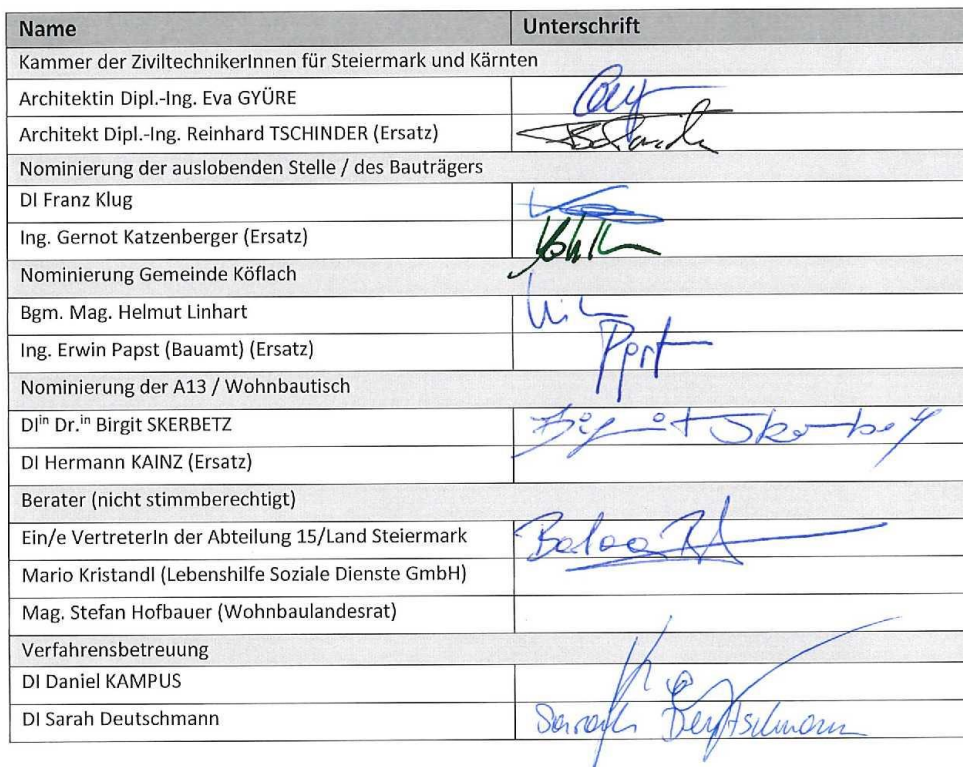 Name Unterschrift
Kammer der ZiviltechnikerInnen für Steiermark und Kärnten
Architektin Dipl.-Ing. Eva GYÜRE
Architekt Dipl.-Ing. Reinhard TSCHINDER (Ersatz)
Nominierung der auslobenden Stelle / des Bauträgers
DI Franz Klug
Ing. Gernot Katzenberger (Ersatz)
Nominierung Gemeinde Köflach
Bgm. Mag. Helmut Linhart
Ing. Erwin Papst (Bauamt) (Ersatz)
Nominierung der A13 / Wohnbautisch
DIin Dr.in Birgit SKERBETZ Birgit Skerbetz
DI Hermann KAINZ (Ersatz)
Berater (nicht stimmberechtigt)
Ein/e VertreterIn der Abteilung 15/Land Steiermark
Mario Kristandl (Lebenshilfe Soziale Dienste GmbH)
Mag. Stefan Hofbauer (Wohnbaulandesrat)
Verfahrensbetreuung
DI Daniel KAMPUS
DI Sarah Deutschmann Sarah Deutschmann